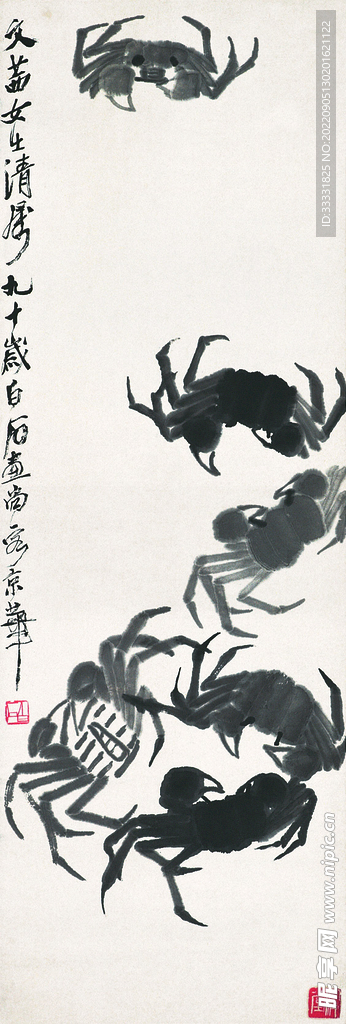 文茜女士清属九十岁白石画尚客京华
ID:33331825 NO:20220905130201621122
昵享网 www.nipic.cn